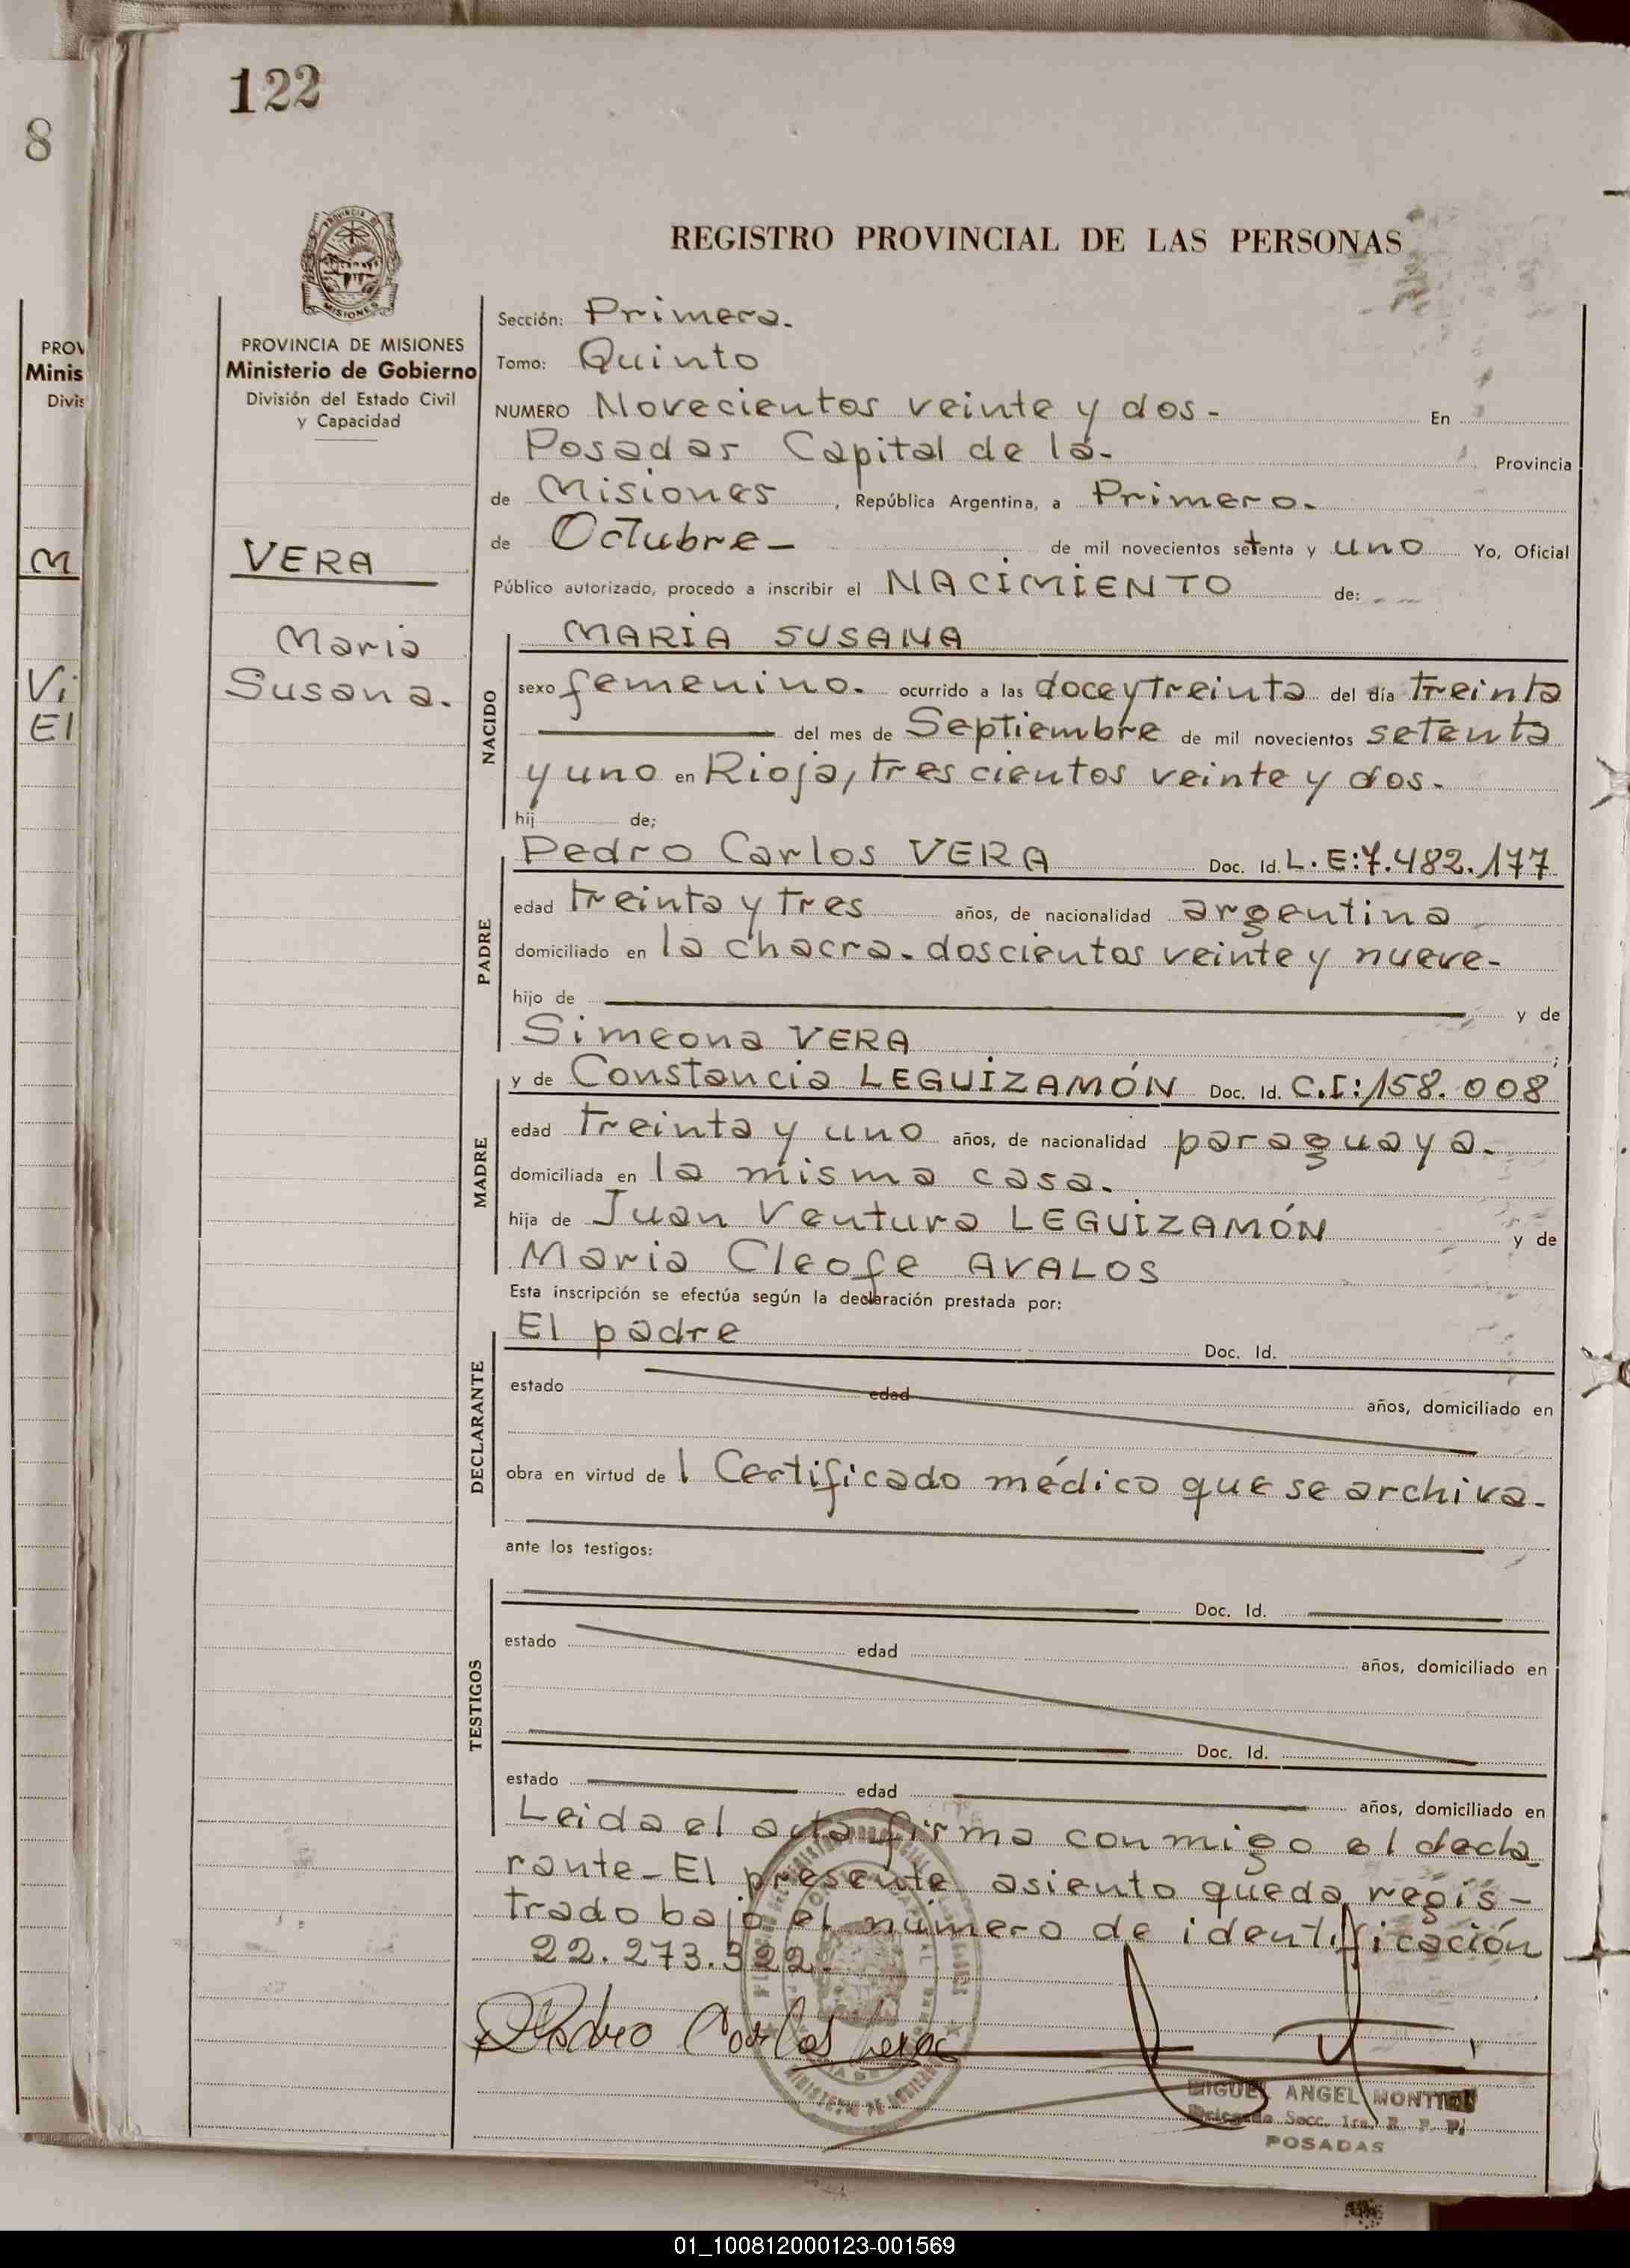 122
8
REGISTRO PROVINCIAL DE LAS PERSONAS
PROVINCIA DE MISIONES
Ministerio de Gobierno
División del Estado Civil
y Capacidad
VERA
Maria
Susana.
PROV
Minis
Divis
M
Vi
El
Sección: Primera.
Tomo: Quinto
NUMERO Novecientos veinte y dos - En
Posadas Capital de la - Provincia
de Misiones, República Argentina, a Primero.
de Octubre - de mil novecientos setenta y uno Yo, Oficial
Público autorizado, procedo a inscribir el NACIMIENTO de:
MARIA SUSANA
NACIDO
sexo femenino. ocurrido a las doce y treinta del día treinta
del mes de Septiembre de mil novecientos setenta
y uno en Rioja, trescientos veinte y dos.
hij de;
Pedro Carlos VERA Doc. Id. L.E:7.482.177
PADRE
edad treinta y tres años, de nacionalidad argentina
domiciliado en la chacra. doscientos veinte y nueve-
hijo de y de
Simeona VERA
y de Constancia LEGUIZAMÓN Doc. Id. C.I:158.008
MADRE
edad treinta y uno años, de nacionalidad paraguaya.
domiciliada en la misma casa.
hija de Juan Ventura LEGUIZAMÓN y de
Maria Cleofe AVALOS
Esta inscripción se efectúa según la declaración prestada por:
El padre Doc. Id.
DECLARANTE
estado edad años, domiciliado en
obra en virtud de l Certificado médico que se archiva.
ante los testigos:
Doc. Id.
TESTIGOS
estado edad años, domiciliado en
Doc. Id.
estado edad años, domiciliado en
Leida el acta firma conmigo el decla
rante - El presente asiento queda regis-
trado bajo el número de identificación
22.273.322.
Pedro Carlos Vera
MIGUEL ANGEL MONTIEL
Delegado Secc. 1ra. R. P. P.
POSADAS
01_100812000123-001569